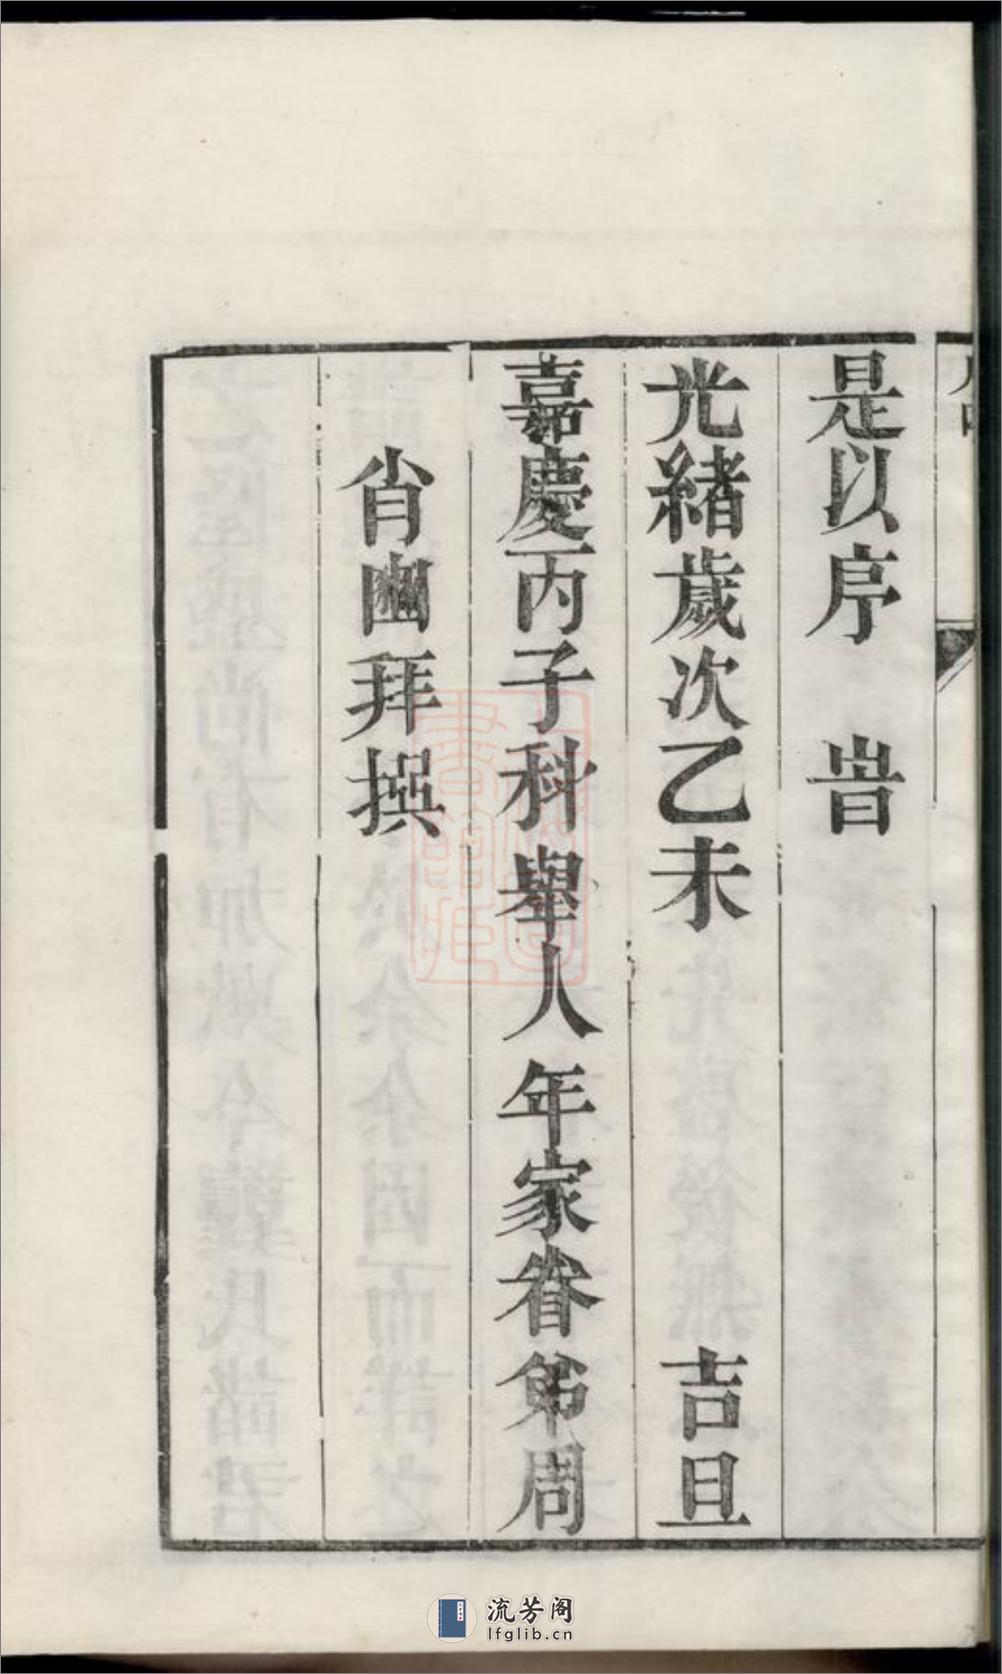 是以序 旹
光緒歲次乙未 吉旦
嘉慶丙子科舉人年家眷弟周
肖 拜撰
流芳阁
lfglib.cn